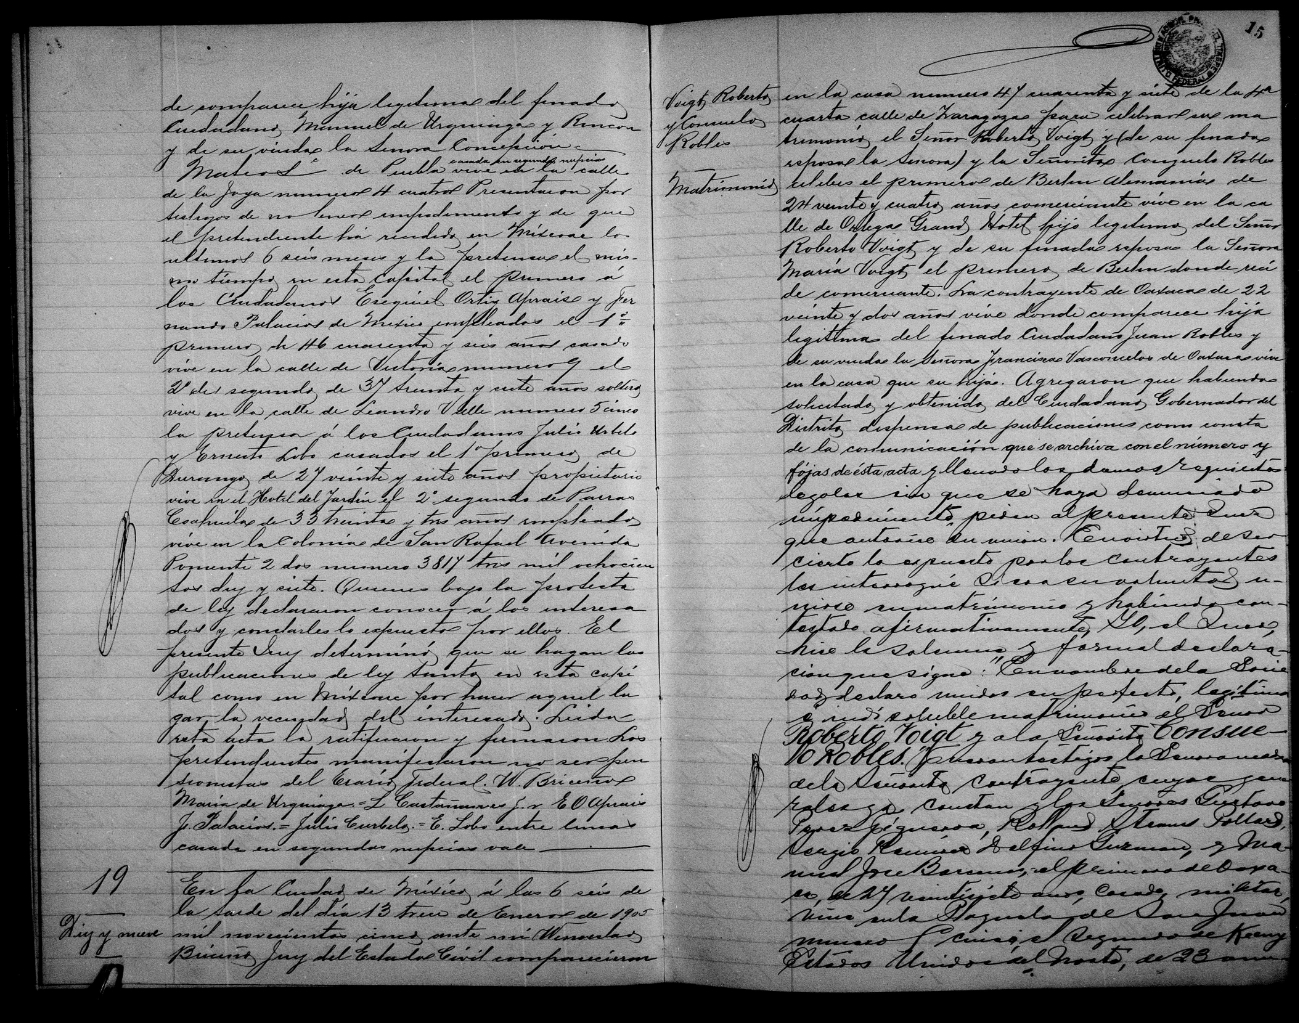 de comparece hija legitima del finado
Ciudadano Manuel de Urquiaga y Rincon
y de su viuda la Señora Concepcion
casada en segundas nupcias
Mateos de Puebla vive en la calle
de la Joya numero 4 cuatro Presentaron por
testigos de no tener impedimento y de que
el pretendiente ha residido en Mixcoac los
ultimos 6 seis meses y la pretensa el mis-
mo tiempo en esta Capital el primero á
los Ciudadanos Ezequiel Ortiz Apraiz y Fer
nando Palacios de Mexico empleados el 1º
primero de 46 cuarenta y seis años casado
vive en la calle de Victoria numero 9 el
2º de segundo de 37 treinta y siete años soltero
vive en la calle de Leandro Valle numero 5 cinco
la pretensa á los Ciudadanos Julio
y Ernesto Lobo casados el 1º primero de
Durango de 27 veinte y siete años propietario
vive en el Hotel del Jardin el 2º segundo de Parras
Coahuila de 33 treinta y tres años empleado
vive en la Colonia de San Rafael Avenida
Poniente 2 dos numero 3817 tres mil ochocien
tos diez y siete. Quienes bajo la protesta
de ley declararon conocer á los interesa
dos y constarles lo expuesto por ellos. El
presente Juez determinó que se hagan las
publicaciones de ley tanto en esta capi
tal como en Mixcoac por haber aquel lu
gar la vecindad del interesado. Leida
esta acta la ratificaron y firmaron Los
pretendientes manifestaron no ser pen
sionistas del Erario Federal. W. Briceño
Maria de Urquiaga = L Castañares Jr E O Apraiz
J. Palacios = Julio Curbelo = E. Lobo entre lineas
casada en segundas nupcias vale
19
Diez y nueve
En la Ciudad de México, á las 6 seis de
la tarde del dia 13 trece de Enero de 1905
mil novecientos cinco, ante mi Wenceslao
Briceño Juez del Estado Civil comparecieron
15
Voigt Roberto
y Consuelo
Robles
Matrimonio
en la casa numero 47 cuarenta y siete de la 4ª
cuarta calle de Zaragoza para celebrar su ma
trimonio el Señor Roberto Voigt y (de su finada
esposa la Señora) y la Señorita Consuelo Robles
celibes el primero de Berlin Alemania de
24 veinte y cuatro años comerciante vive en la ca
lle de Ortega Grand Hotel hijo legitimo del Señor
Roberto Voigt y de su finada esposa la Señora
Maria Voigt el primero de Berlin donde resi
de comerciante. La contrayente de Oaxaca de 22
veinte y dos años vive donde comparece hija
legitima del finado Ciudadano Juan Robles y
de su viuda la Señora Francisca Vasconcelos de Oaxaca vive
en la casa que su hija. Agregaron que habiendo
solicitado y obtenido del Ciudadano Gobernador del
Distrito dispensa de publicaciones como consta
de la comunicación que se archiva con el número y
fojas de ésta acta y llenado los demas requisitos
legales sin que se haya denunciado
impedimento, piden al presente Juez
que autorice su union. En virtud de ser
cierto lo expuesto por los contrayentes
los interrogué si es su voluntad u-
nirse en matrimonio y habiendo con-
testado afirmativamente, Yo, el Juez,
hice la solemne y formal declara-
cion que sigue: "En nombre de la Socie
dad declaro unidos en perfecto, legitimo
é indisoluble matrimonio al Señor
Roberto Voigt y a la Señorita Consue-
lo Robles." Fueron testigos la Señora madre
de la Señorita contrayente cuyas gene
rales ya constan y los Señores Gustavo
Perez Figueroa, Rolland Straus Pollard,
Sergio Ramirez Delfino Guzman, y Ma-
nuel Jose Barenno, el primero de Oaxa
ca, de 27 veintisiete años, casado, militar,
vive en la Plazuela de San Juan
numero 5 cinco, el segundo de
Estados Unidos del Norte, de 23